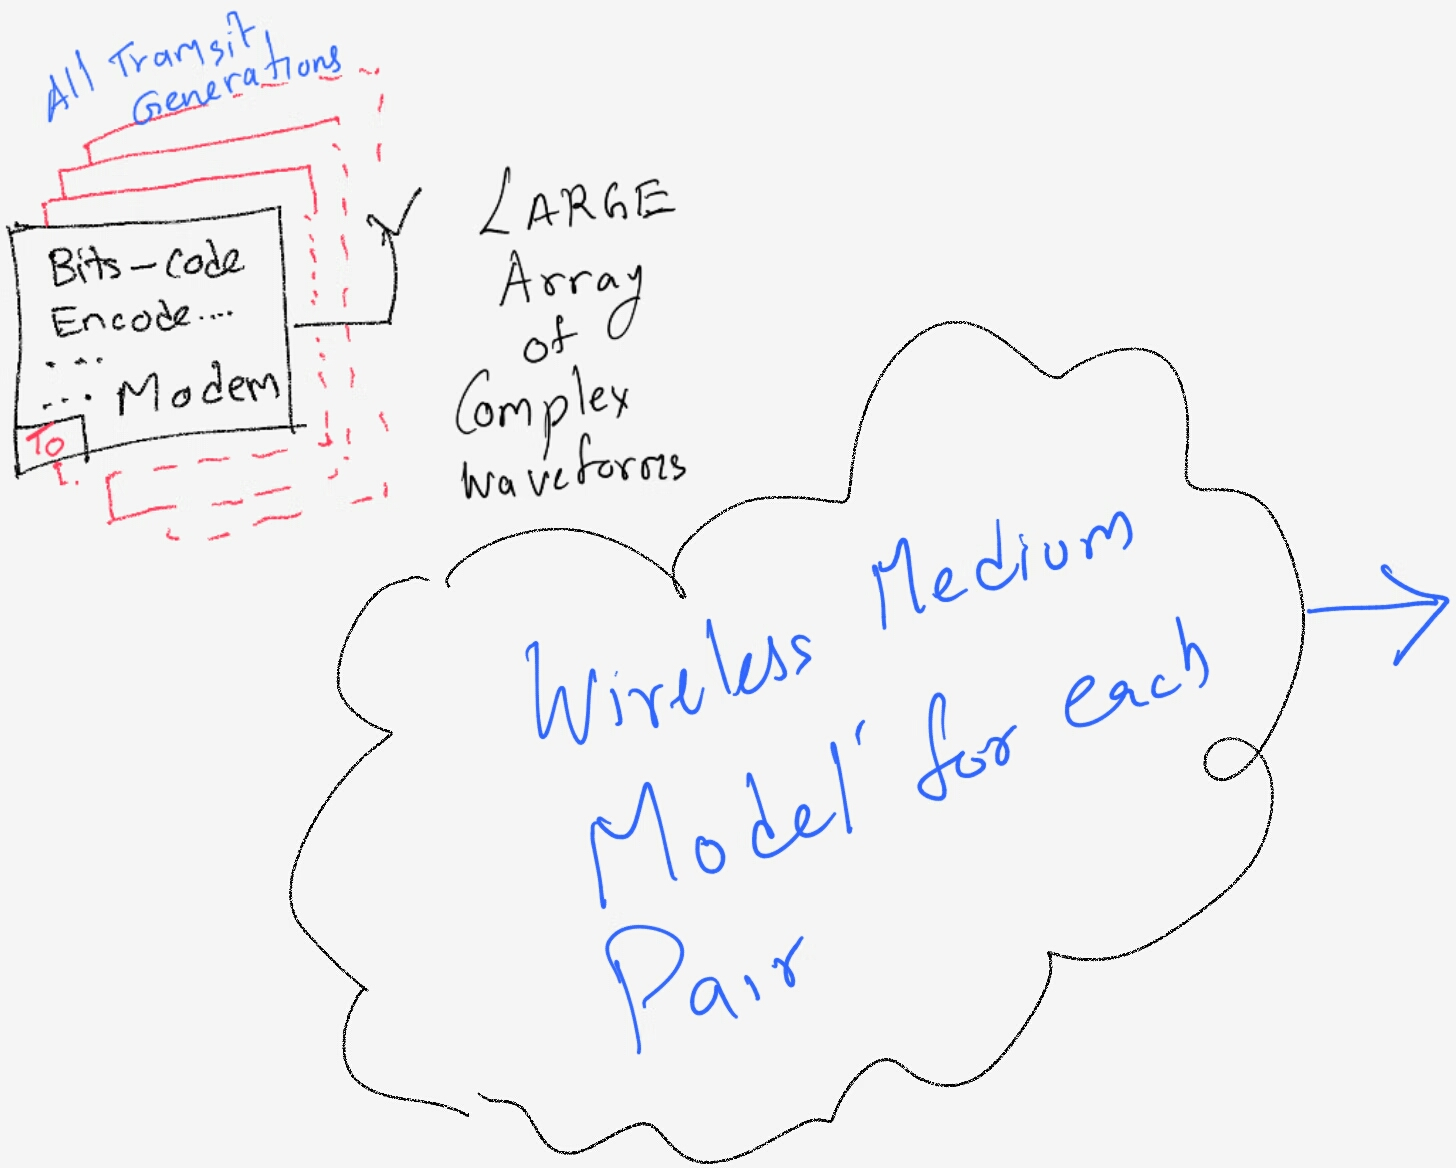 All Transit
Generations
Bits-code
Encode....
...
... Modem
To
LARGE
Array
of
Complex
Waveforms
Wireless Medium
Model' for each
Pair